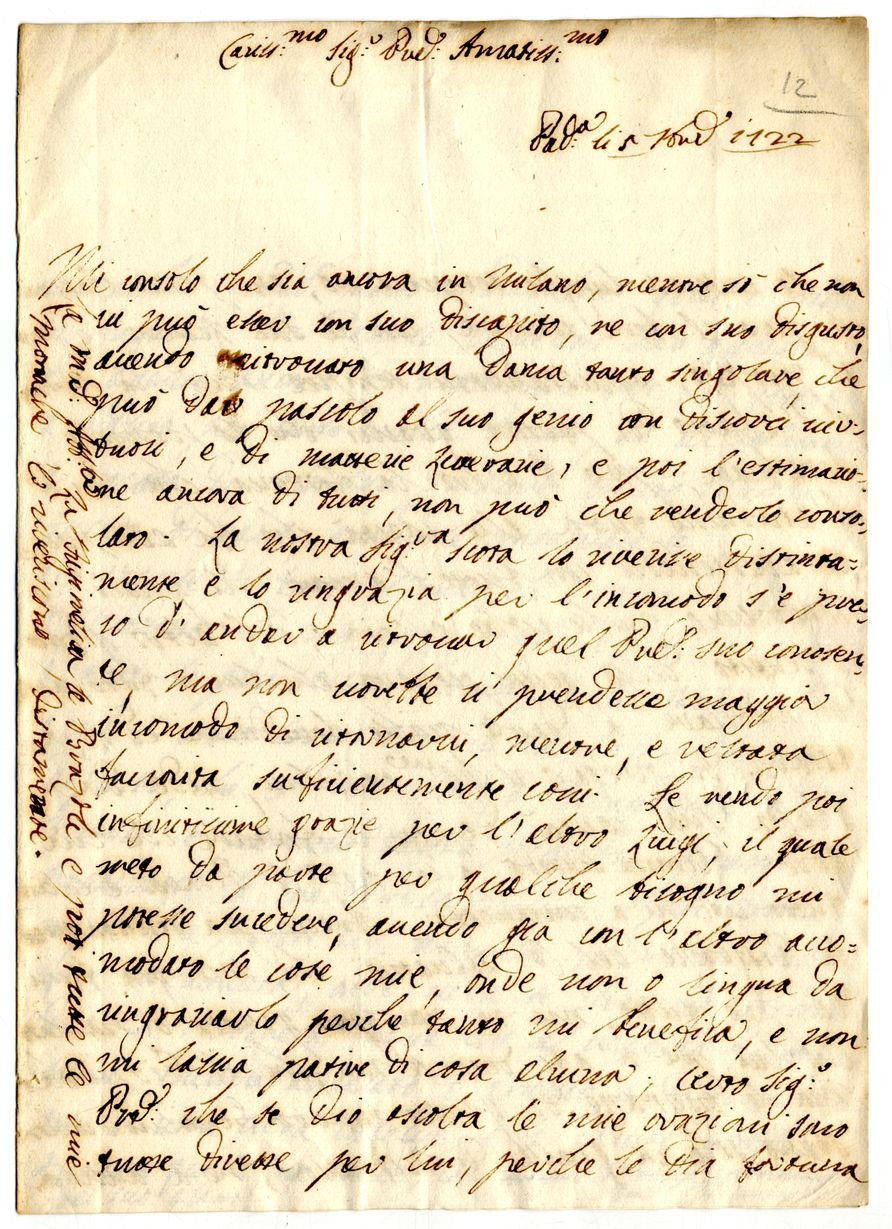 Cariss:mo Sig:r Pred: Amatiss:mo
12
Pad:a li 5 1722
Mi consolo che sia ancora in Milano, mentre sò che non
vi può esser con suo discapito, ne con suo disgusto,
avendo ritrovato una dama tanto singolare, che
può dar pascolo al suo genio con discorsi vir-
tuosi, e di materie Literarie, e poi l'estimazio-
ne ancora di tutti, non può che renderlo conso-
lato. La nostra Sig:ra lo riverisse distinta=
mente e lo ringrazia per l'incomodo s'è pre-
so d'andar a ritrovar quel Pred: suo conosen-
te, ma non vorebbe si prendesse maggior
incomodo di ritornarvi, mentre, e restata
favorita sufficientemente cosi. Le rendo poi
infinitissime grazie per l'altro Luigi, il quale
meto da parte per qualche bisogno mi
potesse sucedere, avendo gia con l'altro acco=
modato le cose mie, onde non o lingua da
ringraziarlo perche tanto mi benefica, e non
mi lascia patire di cosa alcuna, certo Sig:r
Pred: che se Dio ascolta le mie orazioni sono
tutte dirette per lui, perche le dia fortuna
La e poi tutte le mie
moneche lo riveriscono distamente.